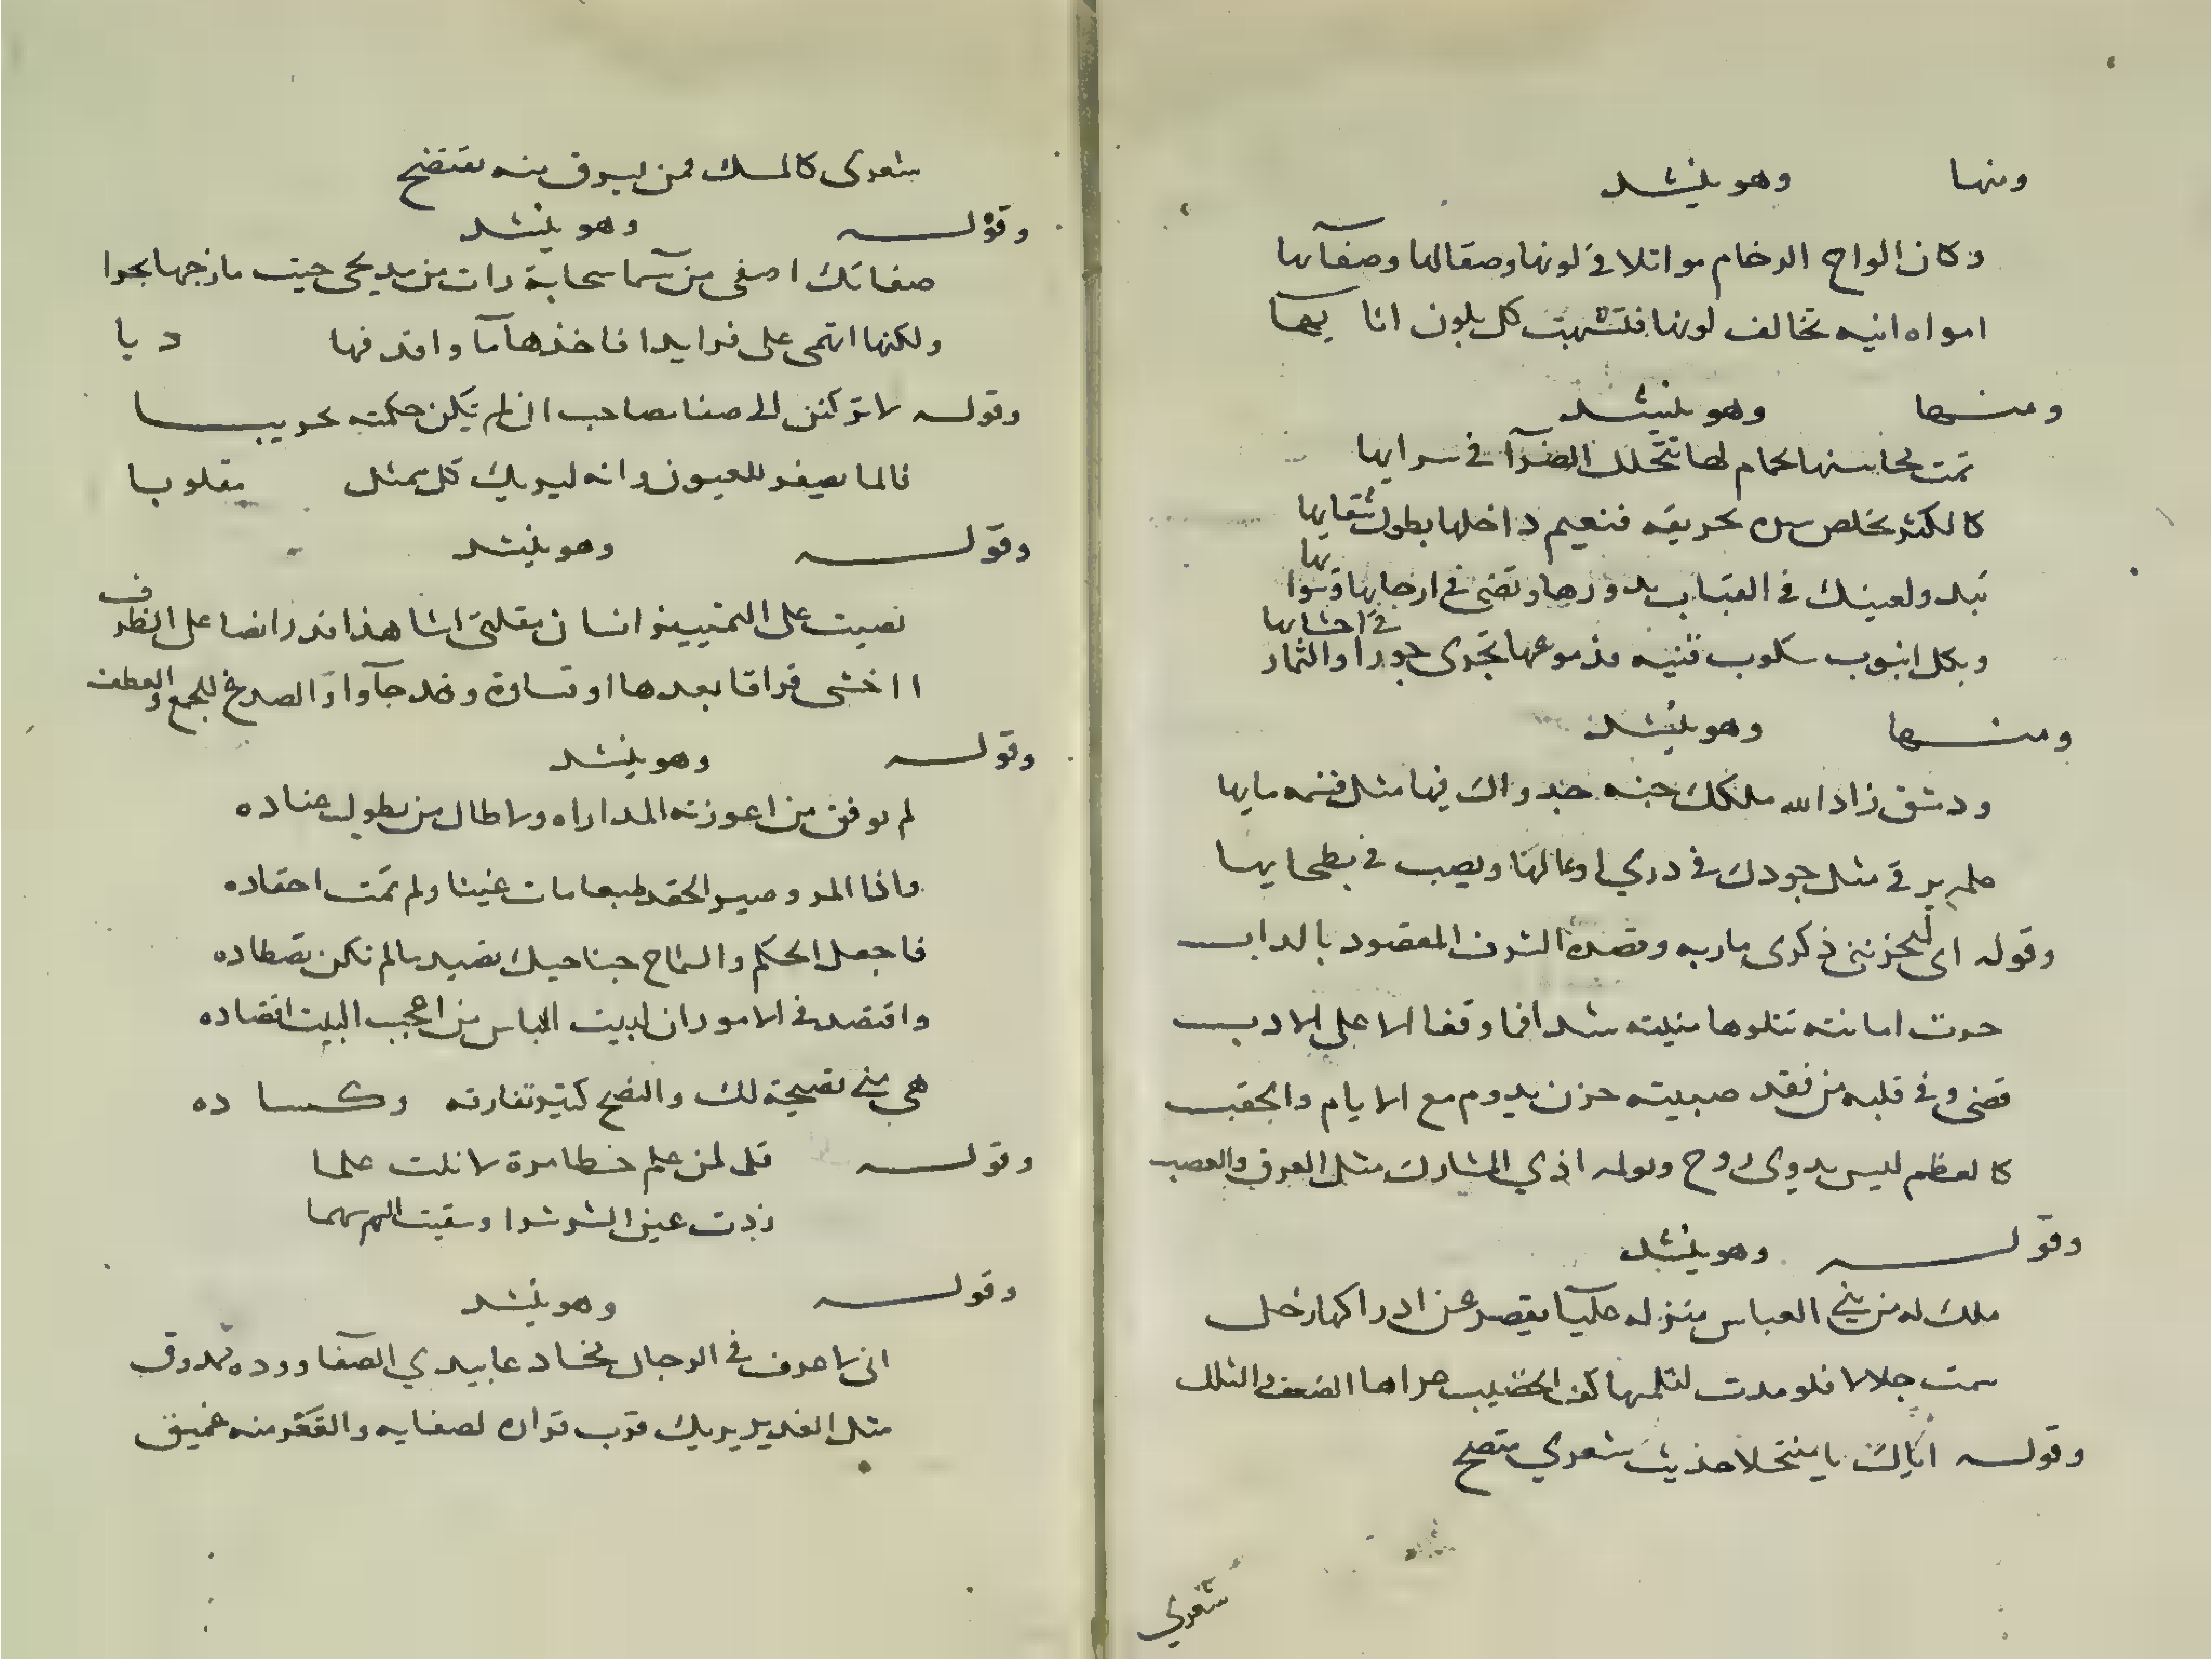 ومنها وهو ينشد
وكان الواح الرخام مواثلا في لونها وصقالها وصفآيها
امواه انيه تخالف لونها فتشبهت كل بلون انايها
ومنها وهو ينشد
تمت محاسنها بحمام لها تتخلل الضرآ في سرايها
كالكثر يخلص من بحريقه فنعيم داخلها بطول شقايها
تبدو لعينك في القباب بدورها وتضى في ارجايها وسوا بها
وبكل انبوب سكوب فنيه مذموعها تجرى جورا والثمار في احشايها
ومنها وهو ينشد
ودمشق زاد الله ملكك جنه جدواك فيها مثل قسمه مايها
علم يرقى مثل جودك في ذري اوعالها ويصب في بطحايها
وقوله اى ليحزننى ذكرى ماربه وقصده الشرف المقصود بالداب
حوت امانته تتلوها منيته شد افما وقفا الا على الادب
قضى وفي قلبه من فقد صبيته حزن يدوم مع الايام والحقب
كالعظم ليس بذوى روح ويولمه اذي المشارك مثل العرق والعصب
وقوله وهو ينشد
ملك له من بني العباس منزله عليآ يقصر عن ادراكها زحل
سمت جلالا فلو مدت لتلمها كف الخضيب عراها الضعف والشلل
وقوله اياك يا منتحلا حديث شعري متصح
شعري
شعرى كالمسك فمن يسرق منه يفتضح
وقوله وهو ينشد
صفاتك اصفى من سما سحابة رات من مديحى حيث مازجها بحرا
ولكنها اتمى على فرايدا فاخذها مآ واقذفها درا
وقوله لا تركنن الى صفا مصاحب ان لم تكن حكمته تجريبا
فالما يصفر للعيون وانه ليريك كل ممثل مقلوبا
وقوله وهو ينشد
نصبت على التمييز انسان مقلتى اشاهد قدرا نصا على الظرف
ااخشى فراقا بعدها او قساوة وقد جآ واو الصدغ للجمع والعطف
وقوله وهو ينشد
لم يوفق من اعوزته المداراه ولا طال من يطول عناده
واذا المرو صير الحقد طبعا مات غبنا ولم تمت احقاده
فاجعل الحكم والسماح جناحيك تصيد ما لم تكن تصطاده
واقتصد في الامور ان لديت الباس من اعجب البيت اقتصاده
هى مني نصيحة لك والنصح كثير تفارقه وكساده
وقوله قل لمن علم خطا مرة لا نلت علما
زدت عين الشر شرا وسقيت السهم سما
وقوله وهو ينشد
انى لاعرف في الرجال مخادعا يبدي الصفآ ووده ممذوق
مثل الغدير يريك قرب قراره لصفايه والقعر منه عميق